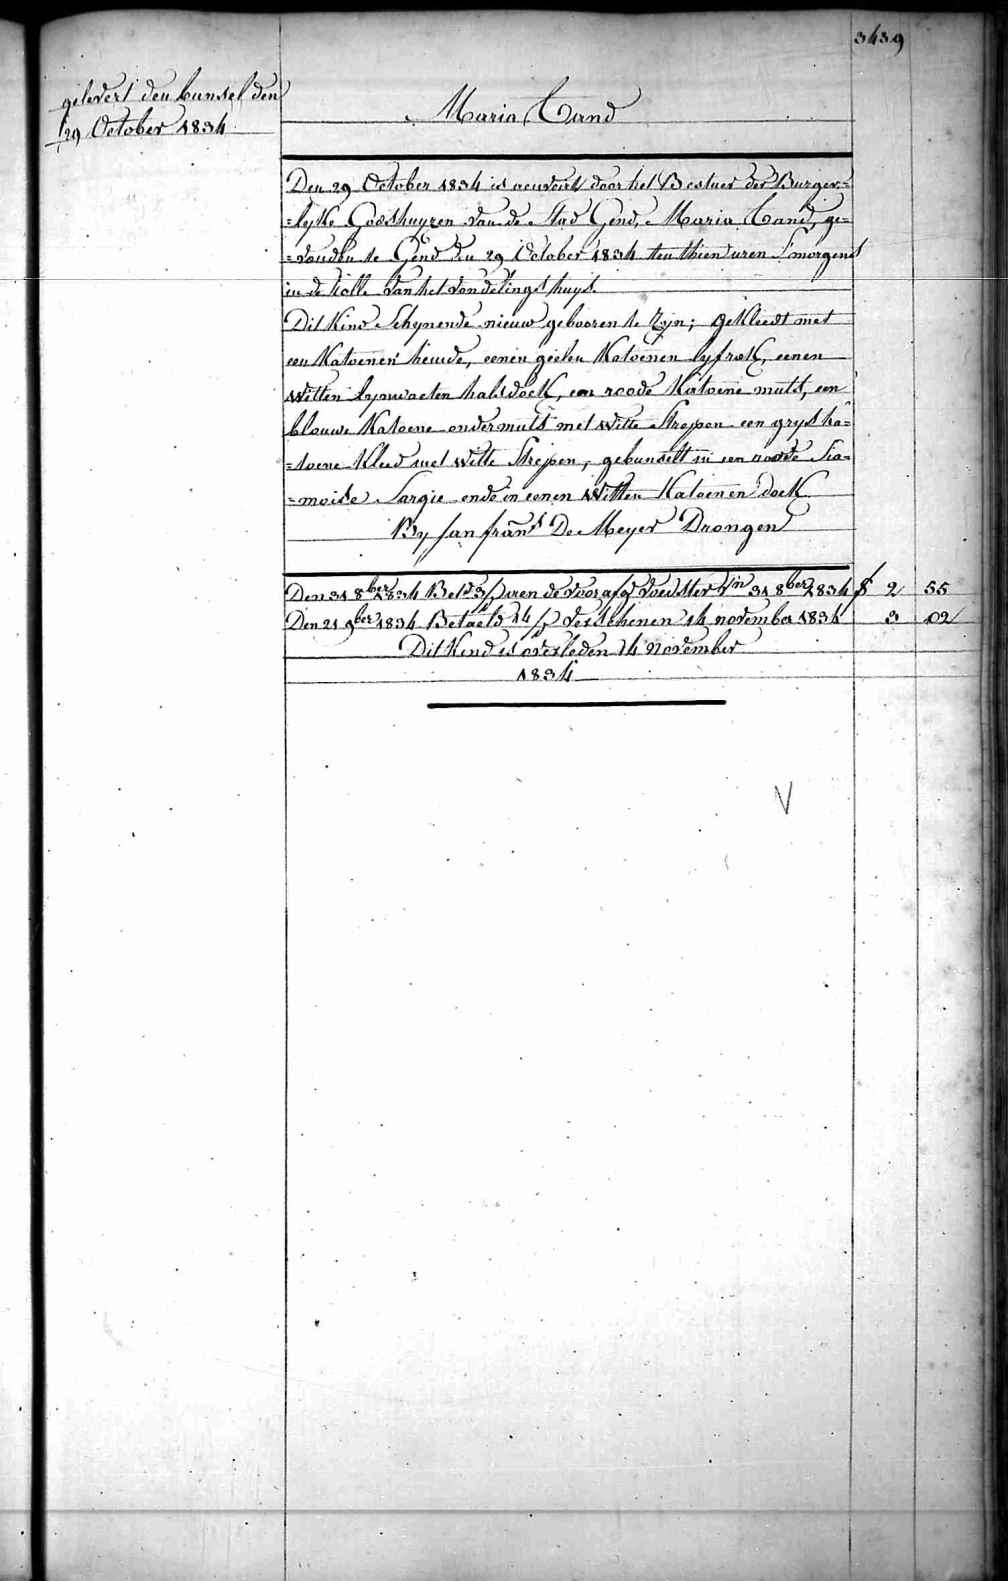 3439
gelevert den bunsel den
29 October 1834
Maria Cand
Den 29 October 1834 is aenveirt door het Bestuer der Burger=
=lyke Godshuyzen van de Stad Gend, Maria Cand, ge=
=vonden te Gend den 29 October 1834 ten thien uren S'morgens
in de rolle van het vondelingshuys
Dit Kind Schynende nieuw gebooren te Zyn; gekleedt met
een Katoenen hemde, eenen geelen Katoenen lyfrok, eenen
witten lynwaeten halsdoek, een roode Katoene muts, een
blouwe Katoene ondermuts met witte Strepen een grys ka=
=toene Kleed met witte Strepen, gebunselt in een roode Sia=
=moise Sargie ende in eenen Witten Katoenen doek
By Jan frans De Meyer Drongen
Den 31 8ber 1834 Bet 3 de voorafg voedster 31 8ber 1834 f 2 55
Den 21 9ber 1834 Betaeld 14 verschenen 14 november 1834 3 02
Dit Kind is overleden 14 november
1834
V